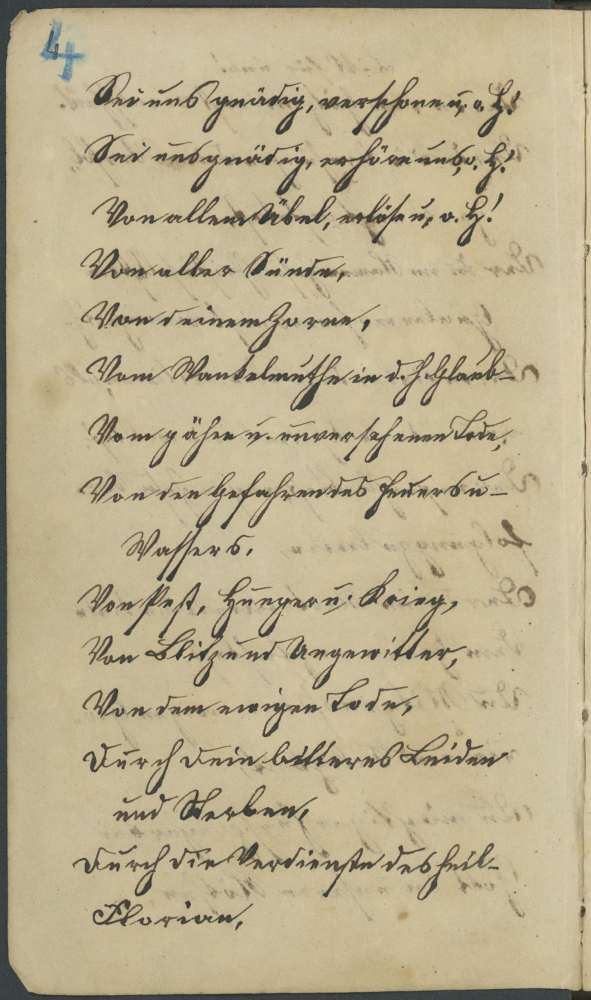 4
Sei uns gnädig, verschone u. o. H!
Sei uns gnädig, erhöre uns, o. H!
Von allem Übel, erlöse u. o. H!
Von aller Sünde,
Von deinem Zorne,
Vom Wankelmuthe in d. h. Glaub-
Vom gähen u. unversehenen Tode,
Von den Gefahren des Feuers u-
Wassers,
Von Pest, Hunger u. Krieg,
Von Blitz und Ungewitter,
Von dem ewigen Tode,
Durch dein bitteres Leiden
und Sterben,
Durch die Verdienste des heil-
Florian,